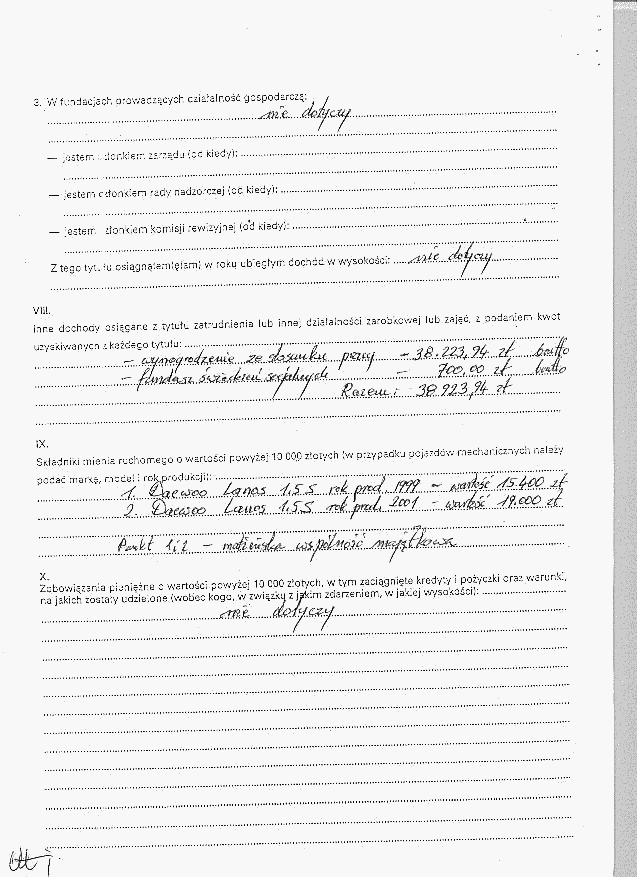 3. W fundacjach prowadzących działalność gospodarczą:
nie dotyczy
— jestem członkiem zarządu (od kiedy):
— jestem członkiem rady nadzorczej (od kiedy):
— jestem członkiem komisji rewizyjnej (od kiedy):
Z tego tytułu osiągnąłem(ęłam) w roku ubiegłym dochód w wysokości: nie dotyczy
VIII.
Inne dochody osiągane z tytułu zatrudnienia lub innej działalności zarobkowej lub zajęć, z podaniem kwot
uzyskiwanych z każdego tytułu:
– wynagrodzenie ze stosunku pracy – 38.223,94 zł brutto
– fundusz świadczeń socjalnych – 700,00 zł brutto
Razem: 38 923,94 zł
IX.
Składniki mienia ruchomego o wartości powyżej 10 000 złotych (w przypadku pojazdów mechanicznych należy
podać markę, model i rok produkcji):
1. Daewoo Lanos 1,5 S rok prod. 1999 – wartość 15.400 zł
2. Daewoo Lanos 1,5 S rok prod. 2001 – wartość 19.000 zł
Punkt 1 i 2 – małżeńska wspólność majątkowa
X.
Zobowiązania pieniężne o wartości powyżej 10 000 złotych, w tym zaciągnięte kredyty i pożyczki oraz warunki,
na jakich zostały udzielone (wobec kogo, w związku z jakim zdarzeniem, w jakiej wysokości):
nie dotyczy